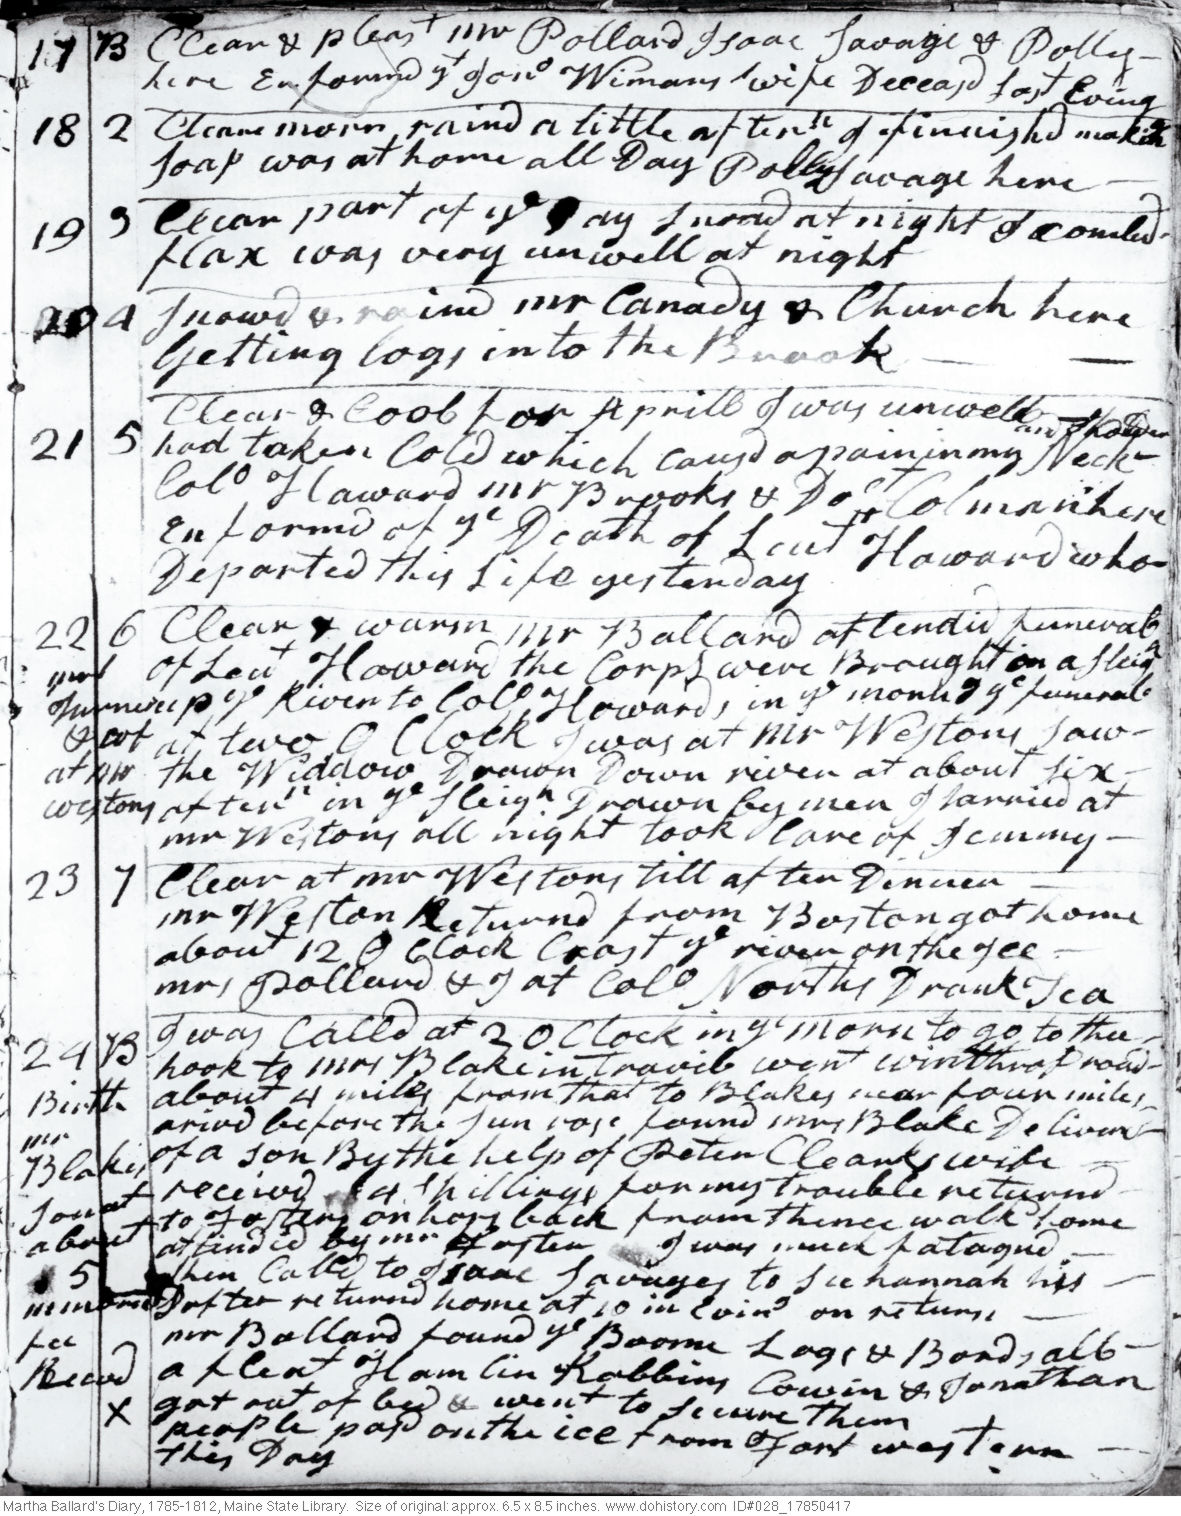 17 B Clear & pleast mr Pollard Isaac Savage & Polly
here Enformd yt Jono Wimans wife Deceasd last Evinᵍ
18 2 Cleare morn, raind a little aftern I finnishd makin
soap was at home all Day Polly Savage here
19 3 Clear part of ye Day Snowd at night I combd
flax was very unwell at night
20 4 Snowd & raind mr Canady & Church here
getting logs into the Brook
Clear & Coold for Aprill I was unwell
21 5 had taken Cold which causd a pain in my Neck
Colo Howard mr Brooks & Doct Colman here
Enformd of ye Death of Leut Howard who
Departed this Life yesterday
22 6 Clear & warm mr Ballard attendid funerall
of Leut Howard the Corps were Brought on a Sleigh
up ye River to Colo Howards in ye morng ye funerall
at two O Clock I was at mr Westons saw
the Widdow Drawn Down river at about six
aftern in ye Sleigh Drawn by men I tarried at
mr Westons all night took Care of Jemmy
& cot
at mr
westons
23 7 Clear at mr Westons till after Dinner
mr Weston Returnd from Boston got home
about 12 O Clock Crost ye river on the Ice
mrs Pollard & I at Colo Norths Drank Tea
24 B I was Calld at 2 O Clock in ye morn to go to the
hook to mrs Blake in travil went winthrop road
about 4 miles from that to Blakes near four miles
arivd before the Sun rose found mrs Blake Deliverd
of a son By the help of Peter Clearks wife
receivd 4 Shillings for my trouble returnd
to Fosters on hors back from thence walk home
attindid by mr Foster I was much fatagued
then Calld to Isaac Savages to See hannah his
Dafter returnd home at 10 in Evinᵍ on return
mr Ballard found ye Boome Logs & Bords all
a fleat Hamlin Robbins Cowin & Jonathan
got out of bed & went to secure them
people pasd on the ice from Fort western
this Day
Birth
mr
Blakes
son at
about
5
fee
Recevd
X
Martha Ballard's Diary, 1785-1812, Maine State Library. Size of original: approx. 6.5 x 8.5 inches. www.dohistory.com ID#028_17850417